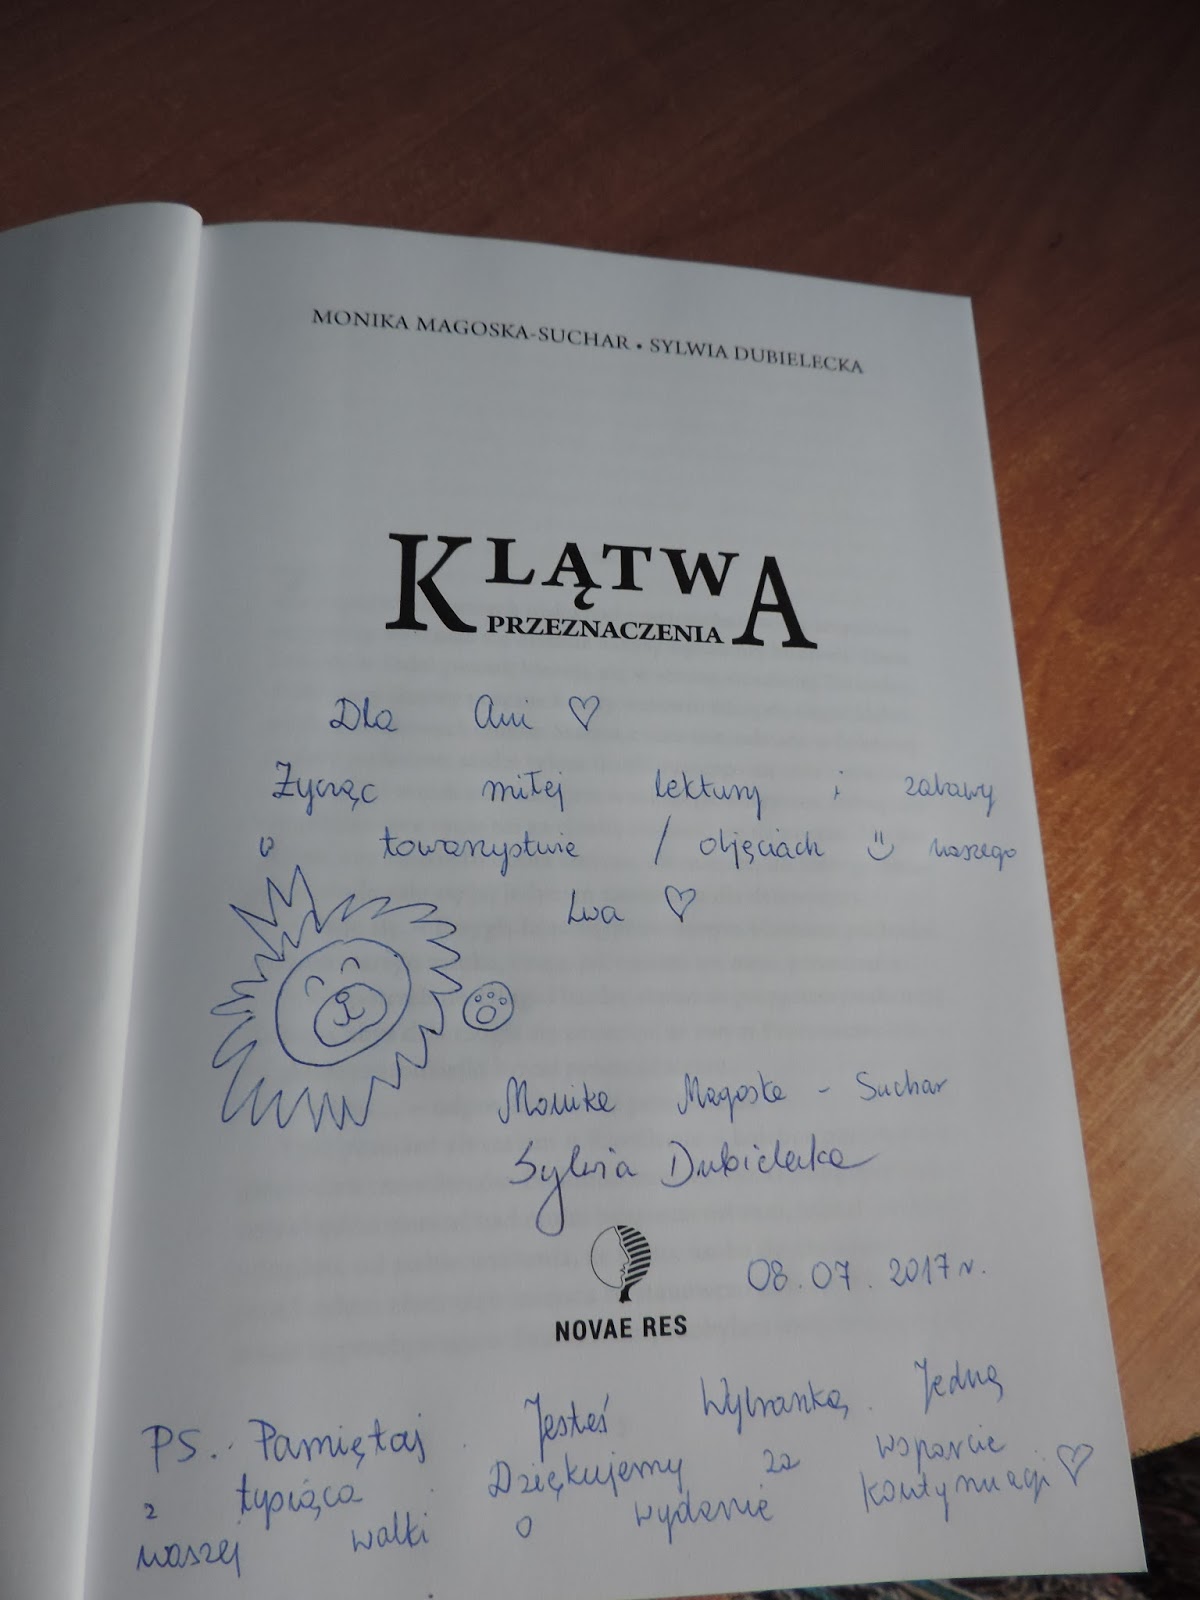 MONIKA MAGOSKA-SUCHAR • SYLWIA DUBIELECKA
KLĄTWA
PRZEZNACZENIA
Dla Ani ♡
Życząc miłej lektury i zabawy
w towarzystwie / objęciach naszego
Lwa ♡
Monika Magoska - Suchar
Sylwia Dubielecka
08.07.2017r.
NOVAE RES
PS. Pamiętaj. Jesteś Wybranką. Jedną
z tysiąca. Dziękujemy za wsparcie
naszej walki o wydanie kontynuacji ♡